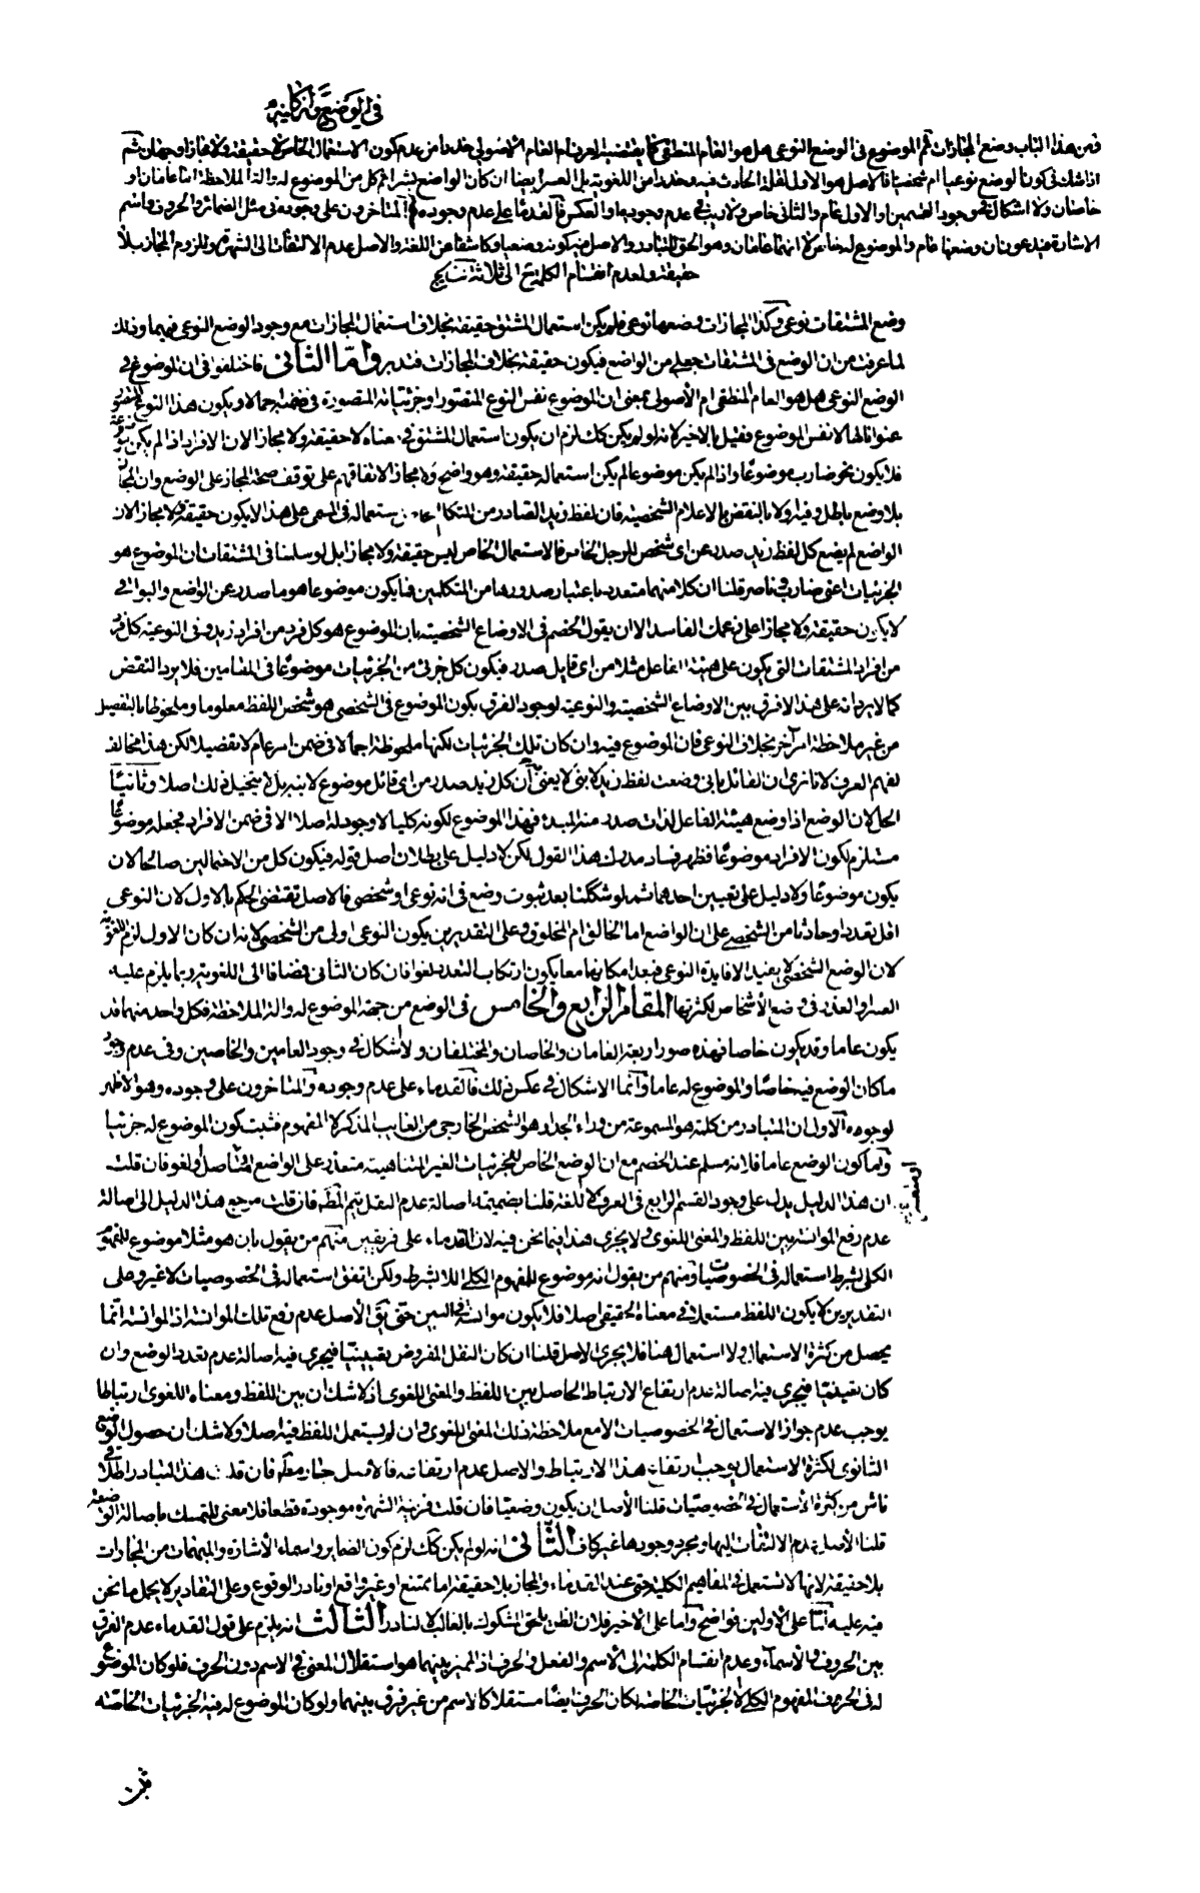 في الوضع واركانه
فمن هذا الباب وضع المجازات ثم الموضوع في الوضع النوعي هل هو العام المنطقي كما يقتضيه العرف ام العام الأصولي حذرا من عدم كون الاستعمال الخاص لا حقيقة ولا مجازا وجهان ثم
اذا شك في كون الوضع نوعيا ام شخصيا فالاصل هو الاول لقلة الحادث فيه وحذرا من اللغوية بل العسر ايضا ان كان الواضع بشرا ثم كل من الموضوع له والة الملاحظة اما عامان او
خاصان ولا اشكال في وجود القسمين او الاول عام والثاني خاص ولا ريب في عدم وجودها والعكس فالقدماء على عدم وجوده والمتأخرون على وجوده في مثل الضمائر والحروف واسم
الاشارة فيدعون ان وضعها عام والموضوع له خاص لا انهما عامان وهو الحق للتبادر والاصل فيه كونه وضعيا وكاشفا عن اللغة والاصل عدم الالتفات الى الشهرة وللزوم المجاز بلا
حقيقة ولعدم انقسام الكلمة ح الى ثلاثة
وضع المشتقات نوعي وكذا المجازات وضعها نوعي فلم يكن استعمال المشتق حقيقة بخلاف استعمال المجازات مع وجود الوضع النوعي فيهما وذلك
لما عرفت من ان الوضع في المشتقات جعلي من الواضع فيكون حقيقة بخلاف المجازات فتدبر واما الثاني فاختلفوا في ان الموضوع في
الوضع النوعي هل هو العام المنطقي ام الأصولي بمعنى ان الموضوع نفس النوع المتصور او جزئياته المتصورة في ضمنه اجمالا ويكون هذا النوع المتصور
عنوانا لها لا نفس الموضوع فقيل بالاخير لانه لو لم يكن كك لزم ان يكون استعمال المشتق في معناه لا حقيقة ولا مجازا لان الافراد اذا لم يكن موضوعة
فلا يكون نحو ضارب موضوعا واذا لم يكن موضوعا لم يكن استعماله حقيقة وهو واضح ولا مجازا لاتفاقهم على توقف صحة المجاز على الوضع وان المجاز
بلا وضع باطل وفيه اولا بالنقض بالاعلام الشخصية فان لفظ زيد الصادر من المتكلم استعماله في المسمى على هذا لا يكون حقيقة ولا مجازا لان
الواضع لم يضع كل لفظ زيد صدر عن اي شخص للرجل الخاص فالاستعمال الخاص ليس حقيقة ولا مجازا بل لو سلمنا في المشتقات ان الموضوع هو
الجزئيات اعني ضارب وناصر قلنا ان كلا منهما متعدد باعتبار صدورها من المتكلمين فما يكون موضوعا هو ما صدر عن الواضع والبواقي
لا يكون حقيقة ولا مجازا على زعمك الفاسد الا ان يقول الخصم في الاوضاع الشخصية بان الموضوع هو كل فرد من افراد زيد وفي النوعية كل فرد
من افراد المشتقات التي يكون على هيئة الفاعل مثلا من اي قايل صدر فيكون كل جزئي من الجزئيات موضوعا في المقامين فلا يرد النقض
كما لا يرد انه على هذا لا فرق بين الاوضاع الشخصية والنوعية لوجود الفرق بكون الموضوع في الشخصي هو شخص اللفظ معلوما وملحوظا بالتفصيل
من غير ملاحظة امر آخر بخلاف النوعي فان الموضوع فيه وان كان تلك الجزئيات لكنها ملحوظة اجمالا في ضمن امر عام لا تفصيلا لكن هذا مخالف
لفهم العرف لانا نرى ان القائل باني وضعت لفظ زيد لابني لا يعني ان كل زيد صدر من اي قائل موضوع لابنه بل لا يتخيل ذلك اصلا وثانيا
الحل لان الوضع اذا وضع هيئة الفاعل لذات صدر منه المبدء فهذا الموضوع لكونه كليا لا وجود له اصلا الا في ضمن الافراد فجعله موضوعا
مستلزم لكون الافراد موضوعا فظهر فساد مدرك هذا القول لكن لا دليل على بطلان اصل قوله فيكون كل من الاحتمالين صالحا لان
يكون موضوعا ولا دليل على تعيين احدهما ثم لو شككنا بعد ثبوت وضع في انه نوعي او شخصي فالاصل تقتضي الحكم بالاول لان النوعي
اقل تعددا وحادثا من الشخصي على ان الواضع اما الخالق ام المخلوق وعلى التقديرين يكون النوعي اولى من الشخصي لانه ان كان الاول لزم اللغوية
لان الوضع الشخصي لا يفيد الا فايدة النوعي فبعد امكانهما معا يكون ارتكاب التعدد لغوا فان كان الثاني فمضافا الى اللغوية ربما يلزم عليه
العسر والعذر في وضع الأشخاص لكثرتها المقام الرابع والخامس في الوضع من جهة الموضوع له والة الملاحظة فكل واحد منهما قد
يكون عاما وقد يكون خاصا فهذه صور اربعة العامان والخاصان والمختلفان ولا اشكال في وجود العامين والخاصين وفي عدم وجود
ما كان الوضع فيه خاصا والموضوع له عاما وانما الاشكال في عكس ذلك فالقدماء على عدم وجوده والمتاخرون على وجوده وهو الاظهر
لوجوده الاول ان المتبادر من كلمة هو المسموعة من وراء الجدار هو الشخص الخارجي من الغايب المذكر لا المفهوم فثبت كون الموضوع له جزئيا
واما كون الوضع عاما فلانه مسلم عند الخصم مع ان الوضع الخاص للجزئيات الغير المتناهية متعذر على الواضع او لغو فان قلت
ان هذا الدليل يدل على وجود القسم الرابع في العرف لا اللغة قلنا بضميمة اصالة عدم النقل يتم المط فان قلت مرجع هذا الدليل الى اصالة
عدم رفع الموانسة بين اللفظ والمعنى اللغوي ولا يجري هذا فيما نحن فيه لان القدماء على فريقين منهم من يقول بان هو مثلا موضوع للمفهوم
الكلي بشرط استعماله في الخصوصيات ومنهم من يقول انه موضوع للمفهوم الكلي اللا بشرط ولكن اتفق استعماله في الخصوصيات لا غير وعلى
التقديرين لا يكون اللفظ مستعملا في معناه الحقيقي اصلا فلا يكون موانسة في البين حتى يق الأصل عدم رفع تلك الموانسة اذ الموانسة انما
يحصل من كثرة الاستعمال ولا استعمال هنا فلا يجري الاصل قلنا ان كان النقل المفروض تعيينيا فيجري فيه اصالة عدم تعدد الوضع وان
كان تعينيا فيجري فيه اصالة عدم ارتفاع الارتباط الحاصل بين اللفظ والمعنى اللغوي اذ لا شك ان بين اللفظ ومعناه اللغوي ارتباطا
يوجب عدم جواز الاستعمال في الخصوصيات الا مع ملاحظة ذلك المعنى اللغوي وان لم يستعمل اللفظ فيه اصلا ولا شك ان حصول الوضع
الثانوي لكثرة الاستعمال يوجب ارتفاع هذا الارتباط والاصل عدم ارتفاعه فالاصل جار معكم فان قلت هذا التبادر اطلاقي
ناش من كثرة الاستعمال في الخصوصيات قلنا الأصل ان يكون وضعيا فان قلت قرينة الشهرة موجودة قطعا فلا معنى للتمسك باصالة الوضعية
قلنا الأصل عدم الالتفات اليها ومجرد وجودها غير كاف الثاني انه لو لم يكن كك لزم كون الضماير واسماء الأشارة والمبهمات من المجازات
بلا حقيقة لانها لا تستعمل في المفاهيم الكلية حتى عند القدماء والمجاز بلا حقيقة اما ممتنع او غير واقع او نادر الوقوع وعلى التقادير لا يحمل ما نحن
فيه عليه اما على الاولين فواضح واما على الاخير فلان الظن يلحق المشكوك بالغالب لا النادر الثالث انه يلزم على قول القدماء عدم الفرق
بين الحروف والأسماء وعدم انقسام الكلمة الى الأسم والفعل والحرف اذ المميز بينهما هو استقلال المعنى في الاسم دون الحرف فلو كان الموضوع
له في الحروف المفهوم الكلي لا الجزئيات الخاصة لكان الحرف ايضا مستقلا كالاسم من غير فرق بينهما ولو كان الموضوع له فيه الجزئيات الخاصة